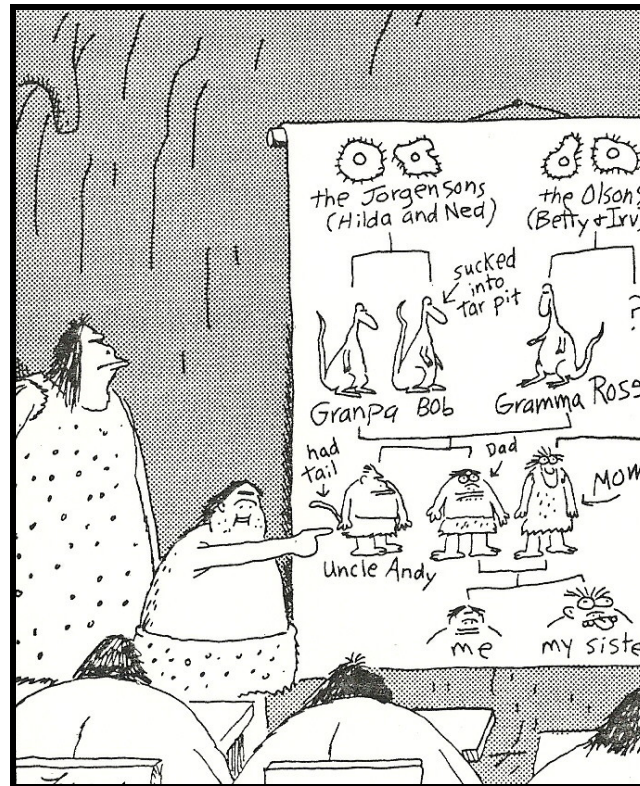 the Jorgensons
(Hilda and Ned)
the Olsons
(Betty & Irv)
sucked
into
tar pit
?
Granpa
Bob
Gramma
had
tail
Dad
Mom
Uncle Andy
me
my siste